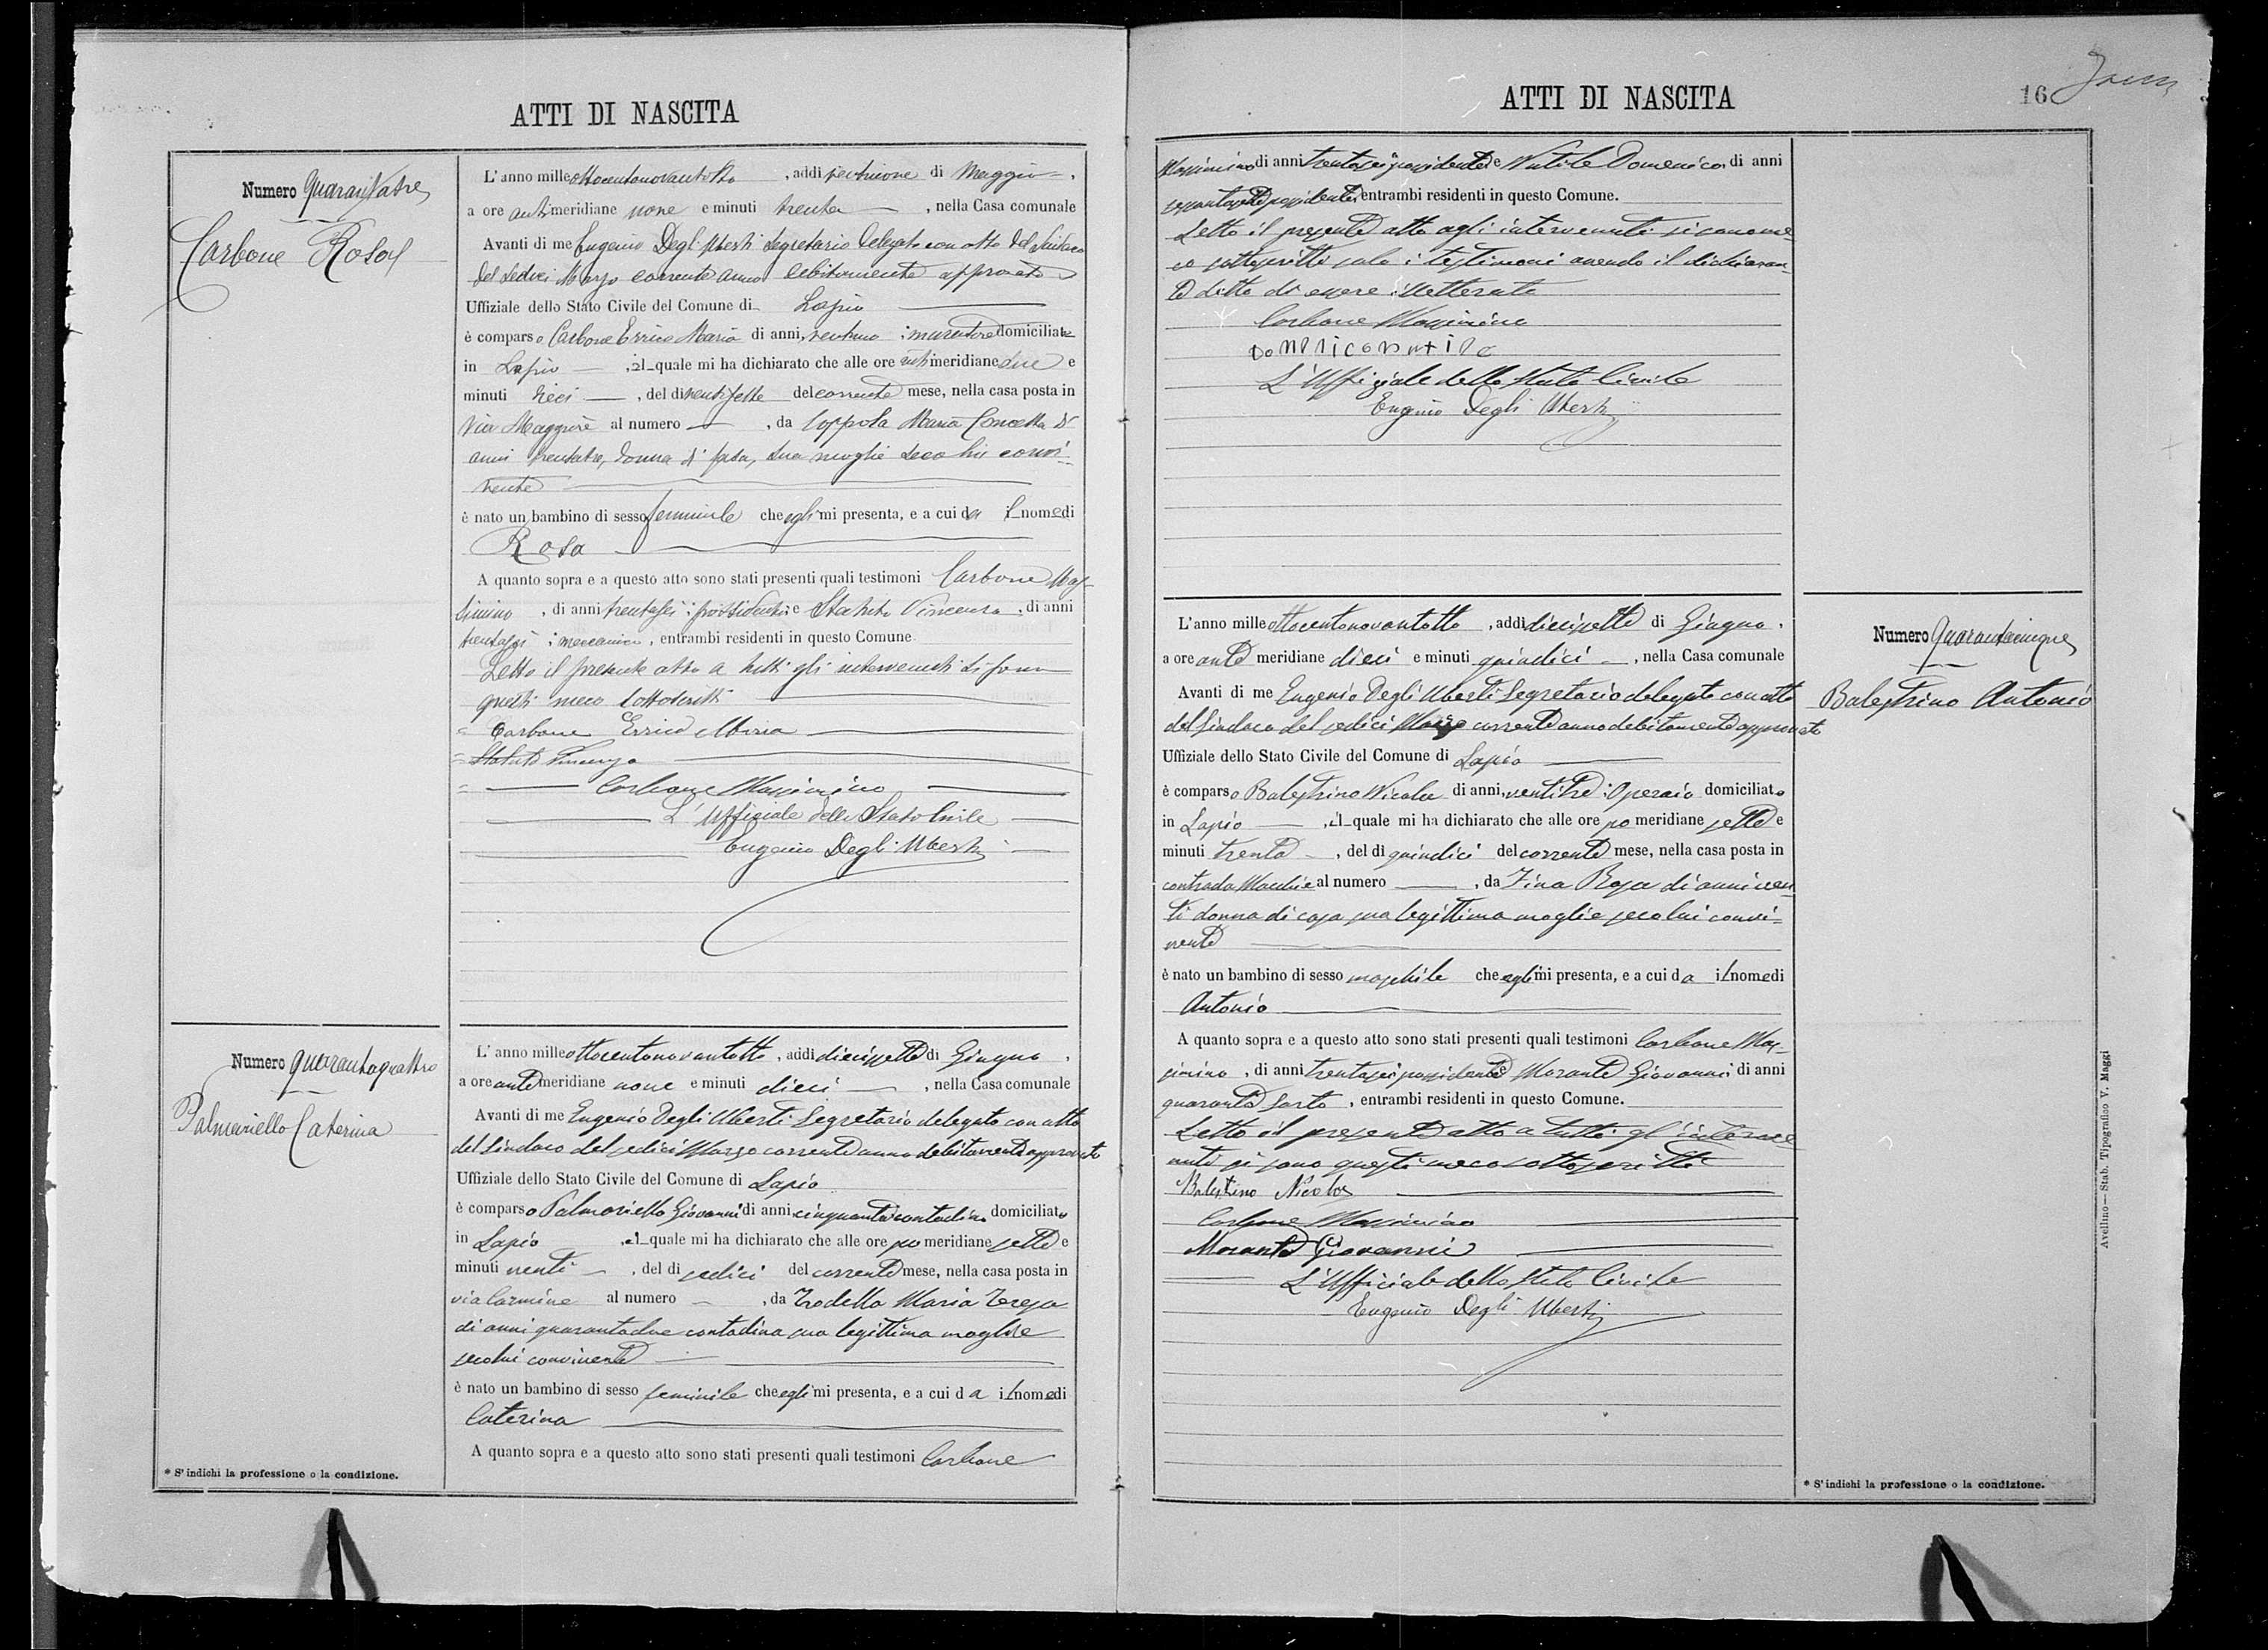 ATTI DI NASCITA
Numero Quarantatre
Carbone Rosa
L'anno milleottocentonovantotto, addi ventinove di Maggio,
a ore antimeridiane nove e minuti trenta, nella Casa comunale
Avanti di me Eugenio Degli Uberti Segretario delegato con atto del Sindaco
del sedici Marzo corrente anno debitamente approvato
Uffiziale dello Stato Civile del Comune di Lapio
è comparso Carbone Errico Maria di anni, ventuno; muratore domiciliato
in Lapio, il quale mi ha dichiarato che alle ore antimeridiane due e
minuti dieci, del dì ventisette del corrente mese, nella casa posta in
Via Maggiore al numero —, da Coppola Maria Concetta di
anni trentatre, donna di casa, sua moglie seco lui convi=
vente
è nato un bambino di sesso femminile che egli mi presenta, e a cui da il nome di
Rosa
A quanto sopra e a questo atto sono stati presenti quali testimoni Carbone Mas-
simino, di anni trentasei; possidente e Statuto Vincenzo, di anni
trentasei; meccanico, entrambi residenti in questo Comune
Letto il presente atto a tutti gli intervenuti si sono
questi meco sottoscritti
= Carbone Errico Maria
= Statuto Vincenzo
= Carbone Massimino
L'Uffiziale dello Stato Civile
Eugenio Degli Uberti
Numero Quarantaquattro
Palmariello Caterina
L'anno milleottocentonovantotto, addi diecisette di Giugno,
a ore antemeridiane nove e minuti dieci, nella Casa comunale
Avanti di me Eugenio Degli Uberti Segretario delegato con atto
del Sindaco del sedici Marzo corrente anno debitamente approvato
Uffiziale dello Stato Civile del Comune di Lapio
è comparso Palmariello Giovanni di anni cinquanta contadino domiciliato
in Lapio, il quale mi ha dichiarato che alle ore pomeridiane sette e
minuti venti, del dì sedici del corrente mese, nella casa posta in
via Carmine al numero —, da Trodella Maria Teresa
di anni quarantadue contadina sua legittima moglie
secolui convivente
è nato un bambino di sesso feminile che egli mi presenta, e a cui da il nome di
Caterina
A quanto sopra e a questo atto sono stati presenti quali testimoni Carbone
* S'indichi la professione o la condizione.
ATTI DI NASCITA
16
Massimino di anni trentasei possidente e Nutile Domenico, di anni
sessantasette possidente, entrambi residenti in questo Comune.
Letto il presente atto agli intervenuti si sono me-
co sottoscritti solo i testimoni avendo il dichiaran-
te detto di essere illetterato
Carbone Massimino
Domenico Nutile
L'Uffiziale dello Stato Civile
Eugenio Degli Uberti
L'anno milleottocentonovantotto, addi diecisette di Giugno,
a ore ante meridiane dieci e minuti quindici, nella Casa comunale
Avanti di me Eugenio Degli Uberti Segretario delegato con atto
del Sindaco del sedici Marzo corrente anno debitamente approvato
Uffiziale dello Stato Civile del Comune di Lapio
è comparso Balestrino Nicola di anni, ventitre; Operaio domiciliato
in Lapio, il quale mi ha dichiarato che alle ore pomeridiane sette e
minuti trenta, del dì quindici del corrente mese, nella casa posta in
contrada Macchie al numero —, da Zina Rosa di anni ven-
ti donna di casa sua legittima moglie secolui convi=
vente
è nato un bambino di sesso maschile che egli mi presenta, e a cui da il nome di
Antonio
A quanto sopra e a questo atto sono stati presenti quali testimoni Carbone Mas-
simino, di anni trentasei possidente Morante Giovanni di anni
quaranta sarto, entrambi residenti in questo Comune.
Letto il presente atto a tutti gl'interve
nuti si sono questi meco sottoscritti
Balestino Nicola
Carbone Massimino
Morante Giovanni
L'Ufficiale dello Stato Civile
Eugenio Degli Uberti
Numero Quarantacinque
Balestrino Antonio
* S'indichi la professione o la condizione.
Avellino — Stab. Tipografico V. Maggi